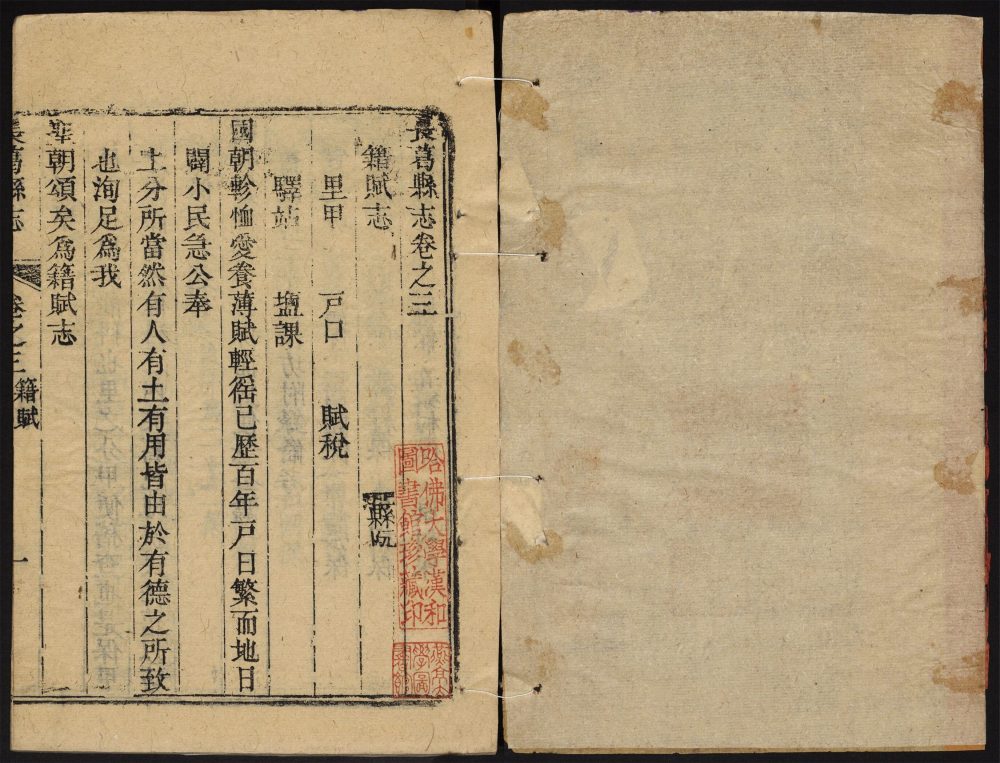 長葛縣志卷之三
籍賦志
里甲 戸口 賦税
驛站 塩課
國朝軫恤愛養薄賦輕徭已歷百年戸日繁而地日
闢小民急公奉
上分所當然有人有土有用皆由於有德之所致
也洵足爲我
聖朝頌矣爲籍賦志
長葛縣志 卷之三 籍賦 一
哈佛大學漢和
圖書館珍藏印